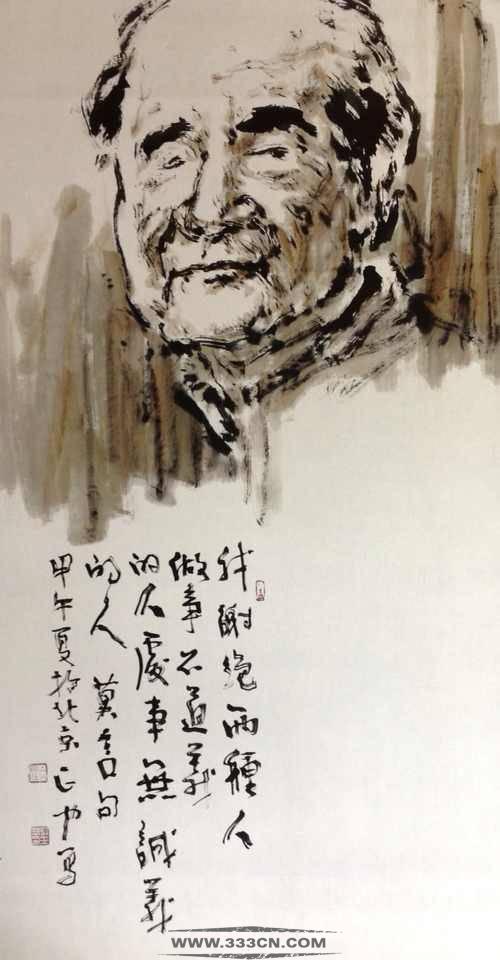 我謝绝兩種人
做事不道義
的人處事無誠義
的人 莫言句
甲午夏於北京正中写
WWW.333CN.COM